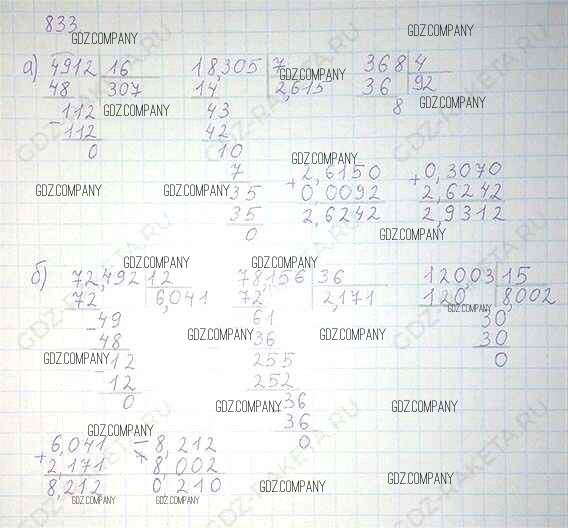 833
GDZ.COMPANY GDZ.COMPANY
а) 4912 | 16 18,305 | 7 368 | 4
48 307 14 2,615 36 92
GDZ.COMPANY GDZ.COMPANY
112 GDZ.COMPANY 43 8 GDZ.COMPANY
- 112 42
0 10
7 GDZ.COMPANY
GDZ.COMPANY GDZ.COMPANY 35 + 2,6150 + 0,3070
35 0,0092 2,6242
0 2,6242 2,9312
GDZ.COMPANY
GDZ.COMPANY GDZ.COMPANY
б) 72,492 | 12 78,156 | 36 120,03 | 15
72 6,041 72 2,171 120 8,002
- 49 61 GDZ.COMPANY 30
48 GDZ.COMPANY 36 GDZ.COMPANY 30
GDZ.COMPANY - 12 255 GDZ.COMPANY 0
12 252
0 GDZ.COMPANY 36 GDZ.COMPANY
36
GDZ.COMPANY 0
+ 6,041 - 8,212
2,171 8,002 GDZ.COMPANY
8,212 0,210 GDZ.COMPANY
GDZ.COMPANY GDZ.COMPANY
GDZ-RAKETA.RU